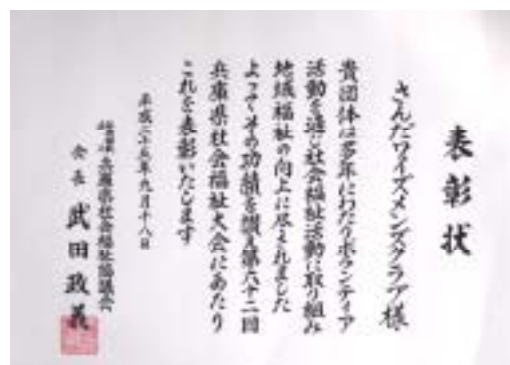 表彰状
さんだワイズメンズクラブ様
貴団体は多年にわたりボランティア
活動を通じ社会福祉活動に取り組み
地域福祉の向上に尽くされました
よってその功績を讃え第六十二回
兵庫県社会福祉大会にあたり
これを表彰いたします
平成二十五年九月十八日
兵庫県社会福祉協議会
会長 武田政義